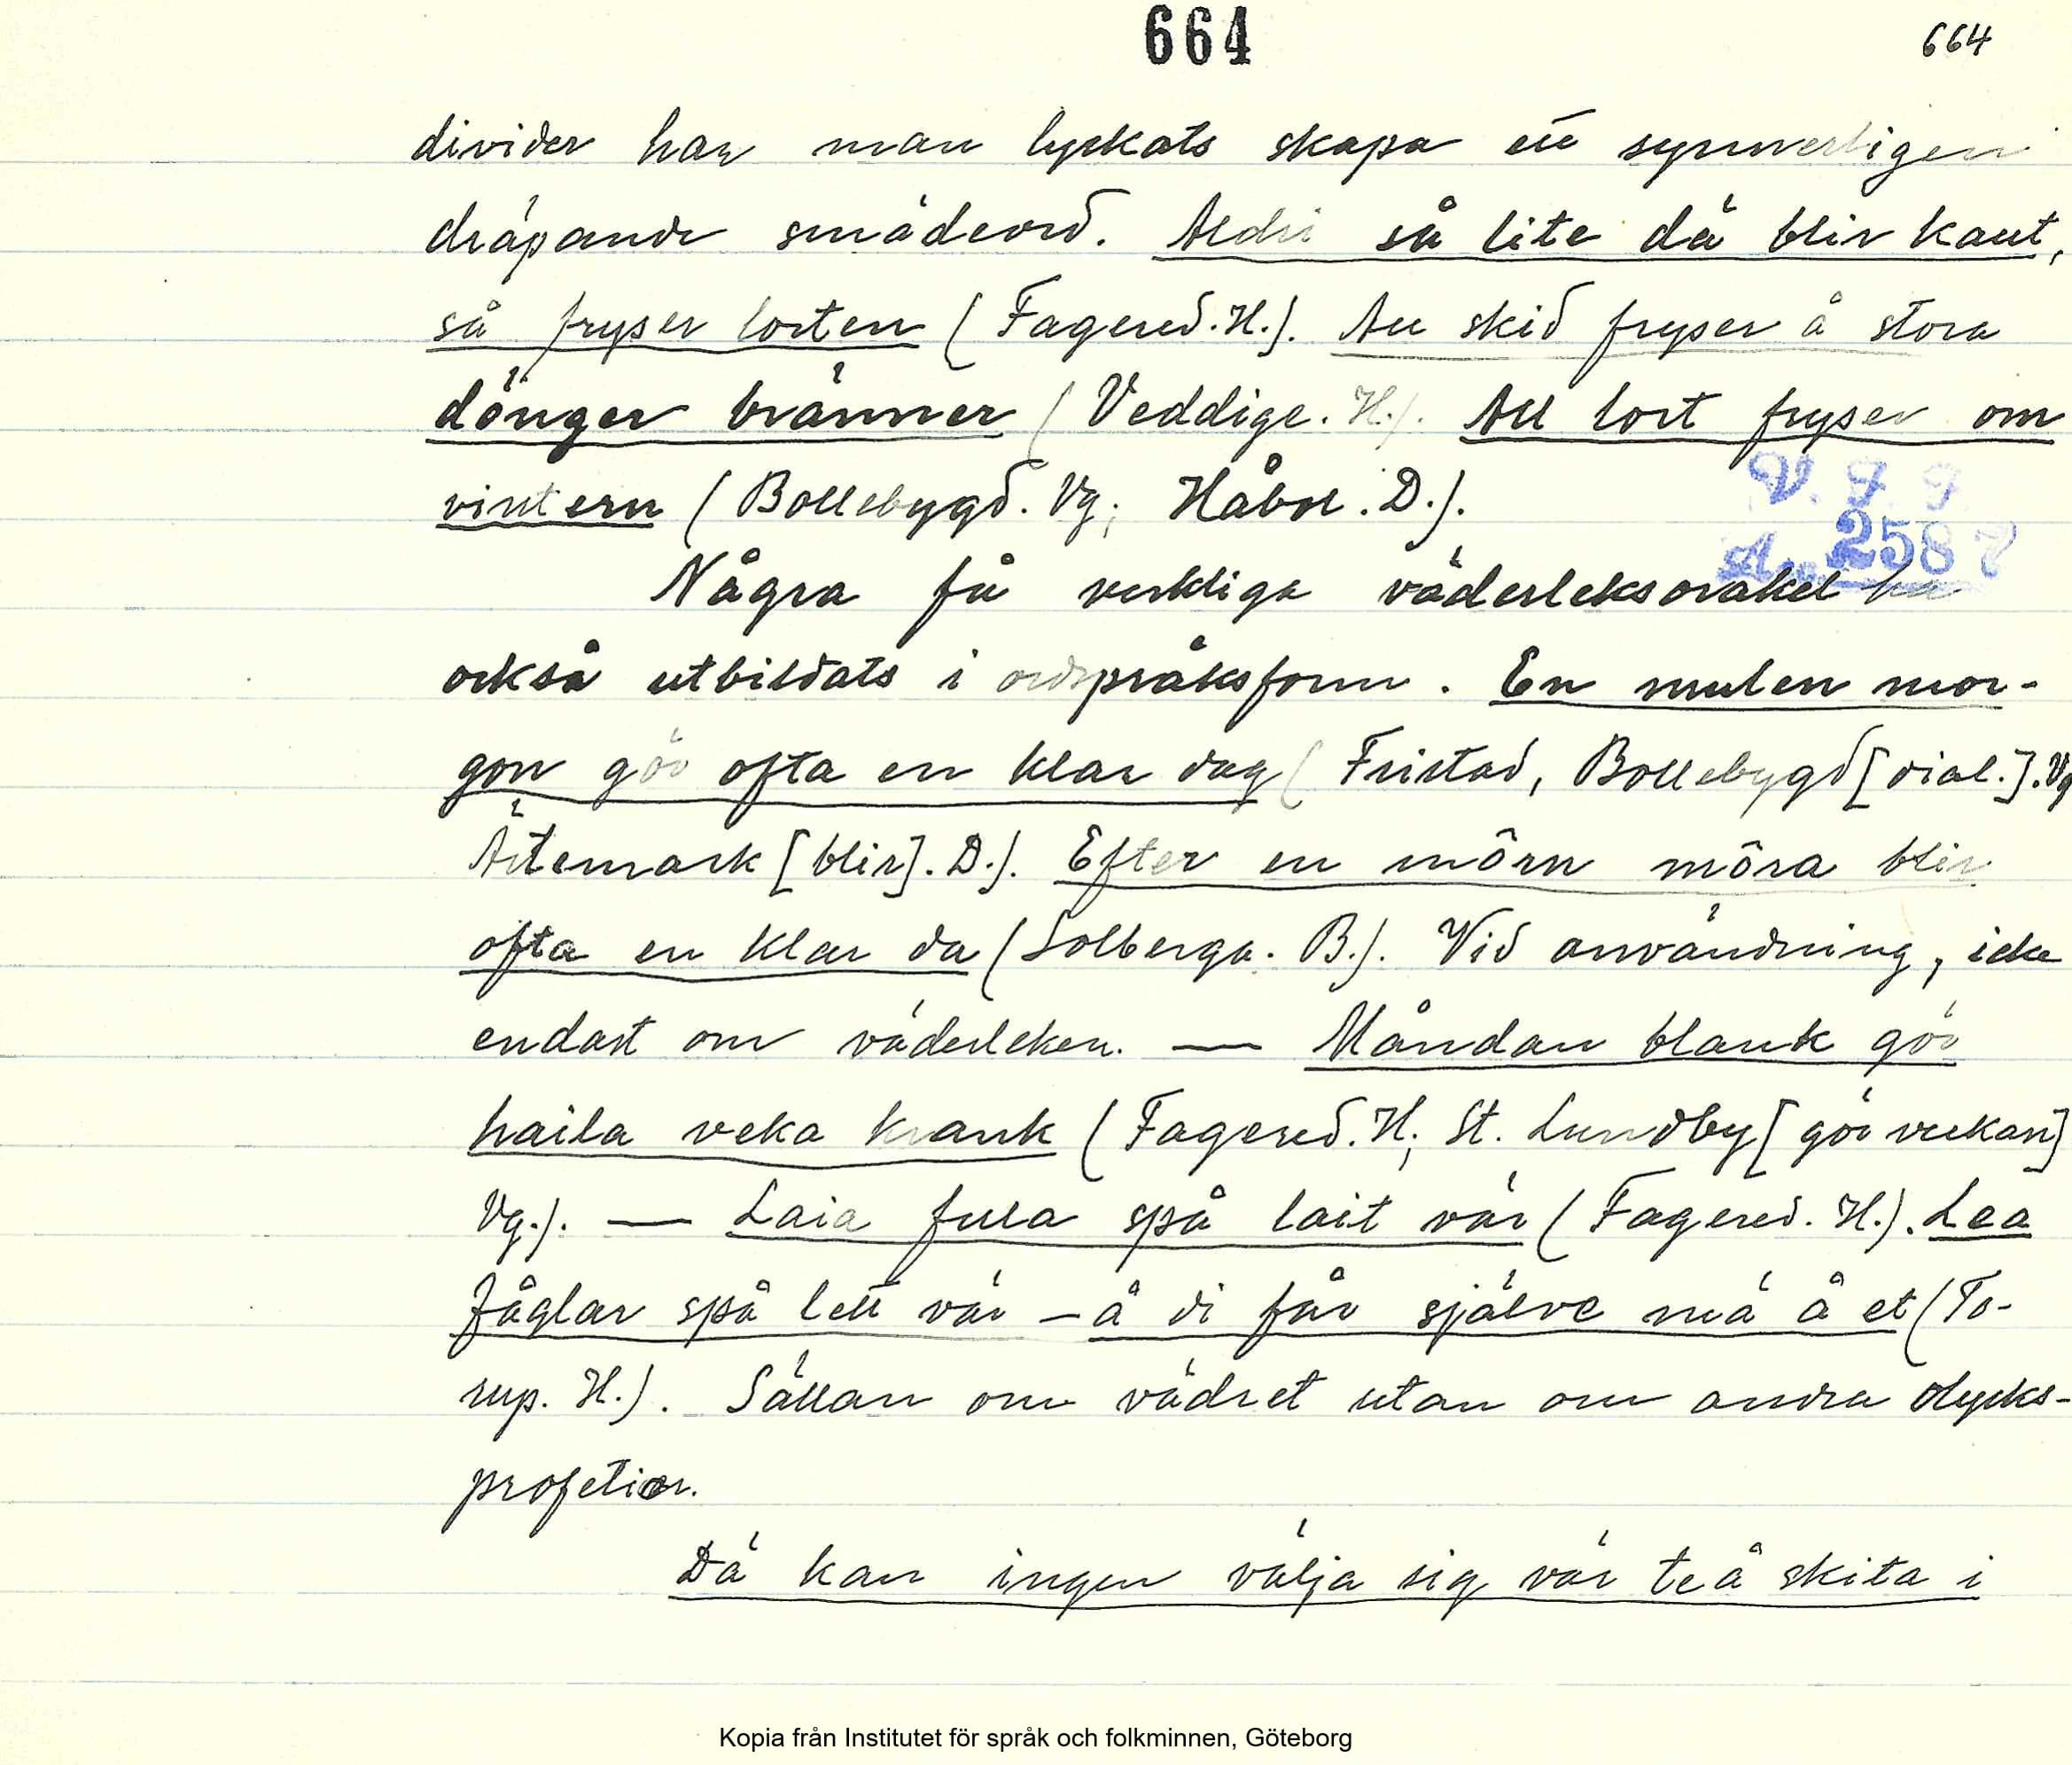 664
664
divider har man lyckats skapa ett synnerligen
dräpande smädeord. Aldri så lite dä blir kaut,
så fryser lorten (Fagered. H.). All skid fryser å stora
dönger bränner (Veddige. H.). All lort fryser om
vintern (Bollebygd. Vg; Håbol. D.).
V. F. F.
A. 2587
Några få verkliga väderleksorakel ha
också utbildats i ordspråksform. En mulen mor-
gon gör ofta en klar dag (Fristad, Bollebygd [dial.]. Vg
Ärtemark [blir]. D.). Efter en mörn môra blir
ofta en klar da (Solberga. B.). Vid användning, icke
endast om väderleken. — Måndan blank gör
haila veka krank (Fagered. H; St. Lundby [gör veckan]
Vg.). — Laia fula spå lait vär (Fagered. H.). Lea
fåglar spå lett vär – å di får själve mä å et (To-
rup. H.). Sällan om vädret utan om andra olycks-
profetior.
Dä kan ingen välja sig vär te å skita i
Kopia från Institutet för språk och folkminnen, Göteborg